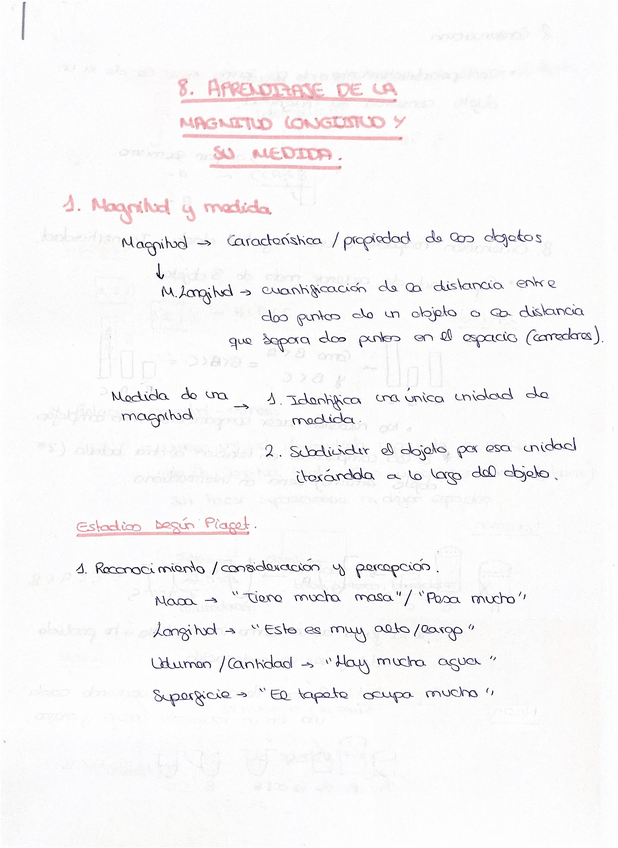 8. APRENDIZAJE DE LA
MAGNITUD LONGITUD Y
SU MEDIDA.
1. Magnitud y medida
Magnitud → Característica / propiedad de los objetos
↓
M. Longitud → cuantificación de la distancia entre
dos puntos de un objeto o la distancia
que separa dos puntos en el espacio (corredores).
Medida de una → 1. Identifica una única unidad de
magnitud medida.
2. Subdividir el objeto por esa unidad
iterándola a lo largo del objeto.
Estadios según Piaget.
1. Reconocimiento / consideración y percepción.
Masa → "Tiene mucha masa" / "Pesa mucho"
Longitud → "Esto es muy alto / largo"
Volumen / Cantidad → "Hay mucha agua"
Superficie → "El tapete ocupa mucho"